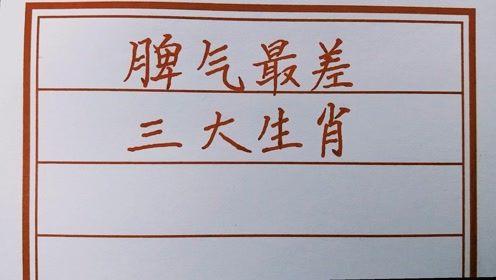 脾气最差
三大生肖